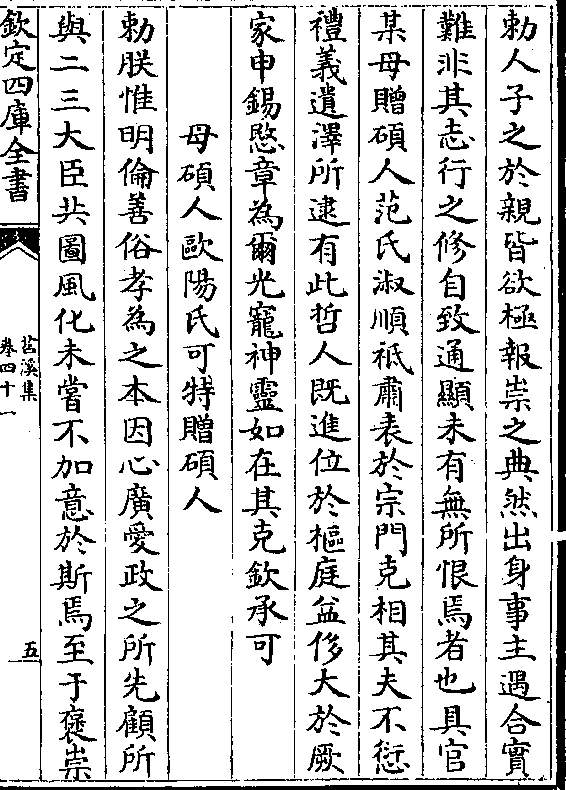 勅人子之於親皆欲極報崇之典然出身事主遇合實
難非其志行之修自致通顯未有無所恨焉者也具官
某母贈碩人范氏淑順祗肅表於宗門克相其夫不愆
禮義遺澤所逮有此哲人既進位於樞庭益侈大於厥
家申錫愍章為爾光寵神靈如在其克欽承可
母碩人歐陽氏可特贈碩人
勅朕惟明倫善俗孝為之本因心廣愛政之所先顧所
與二三大臣共圖風化未嘗不加意於斯焉至于褒崇
欽定四庫全書
苕溪集
卷四十一
五